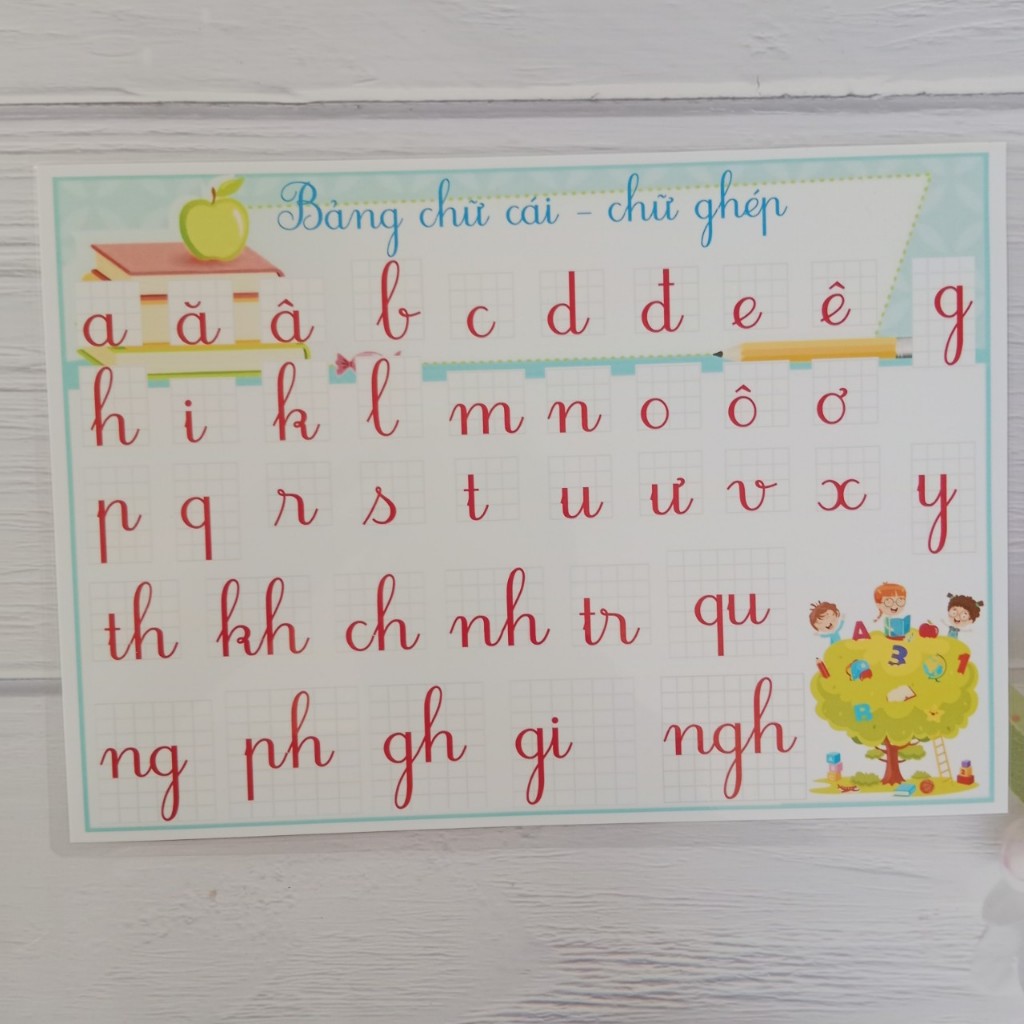 Bảng chữ cái - chữ ghép
a ă â b c d đ e ê g
h i k l m n o ô ơ
p q r s t u ư v x y
th kh ch nh tr qu
ng ph gh gi ngh
A 3 1
B